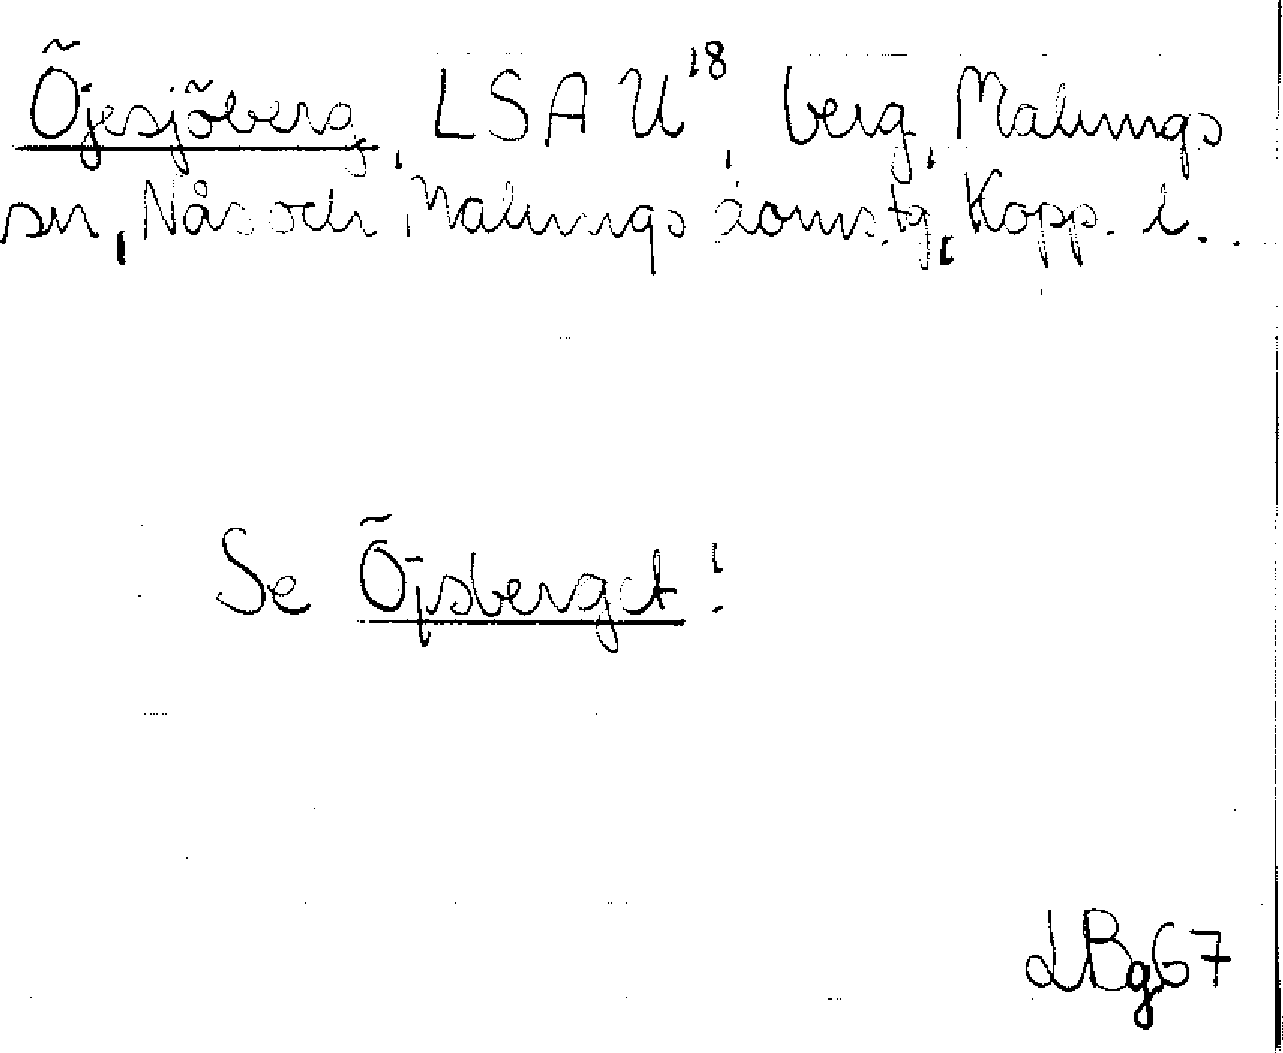 Öjesjöberg, LSA U18, berg, Malungs
sn, Nås och Malungs domstg, Kopp. l.
Se Öjsberget!
LBg67